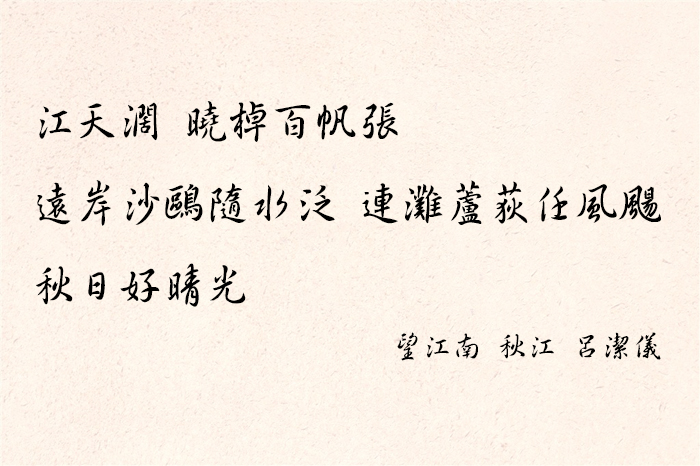 江天濶 曉棹百帆張
遠岸沙鷗隨水泛 連灘蘆荻任風颺
秋日好晴光
望江南 秋江 呂潔儀